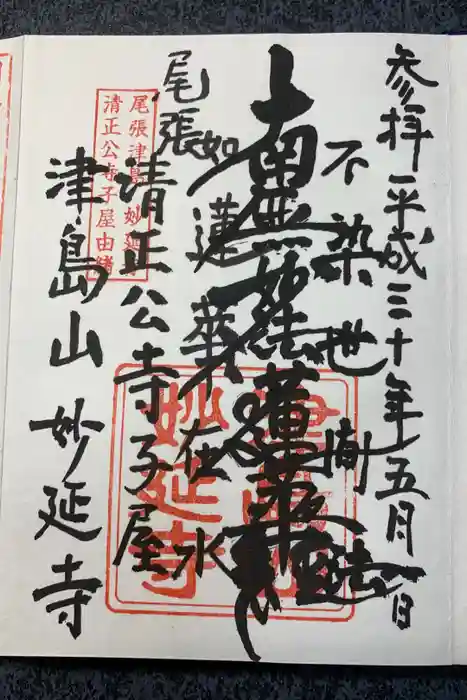 参拝 平成三十年五月一日
不染世間法
南無妙法蓮華経
如蓮華在水
尾張
清正公寺子屋
津島山 妙延寺
尾張津島 妙延
清正公寺子屋由緒
妙延寺